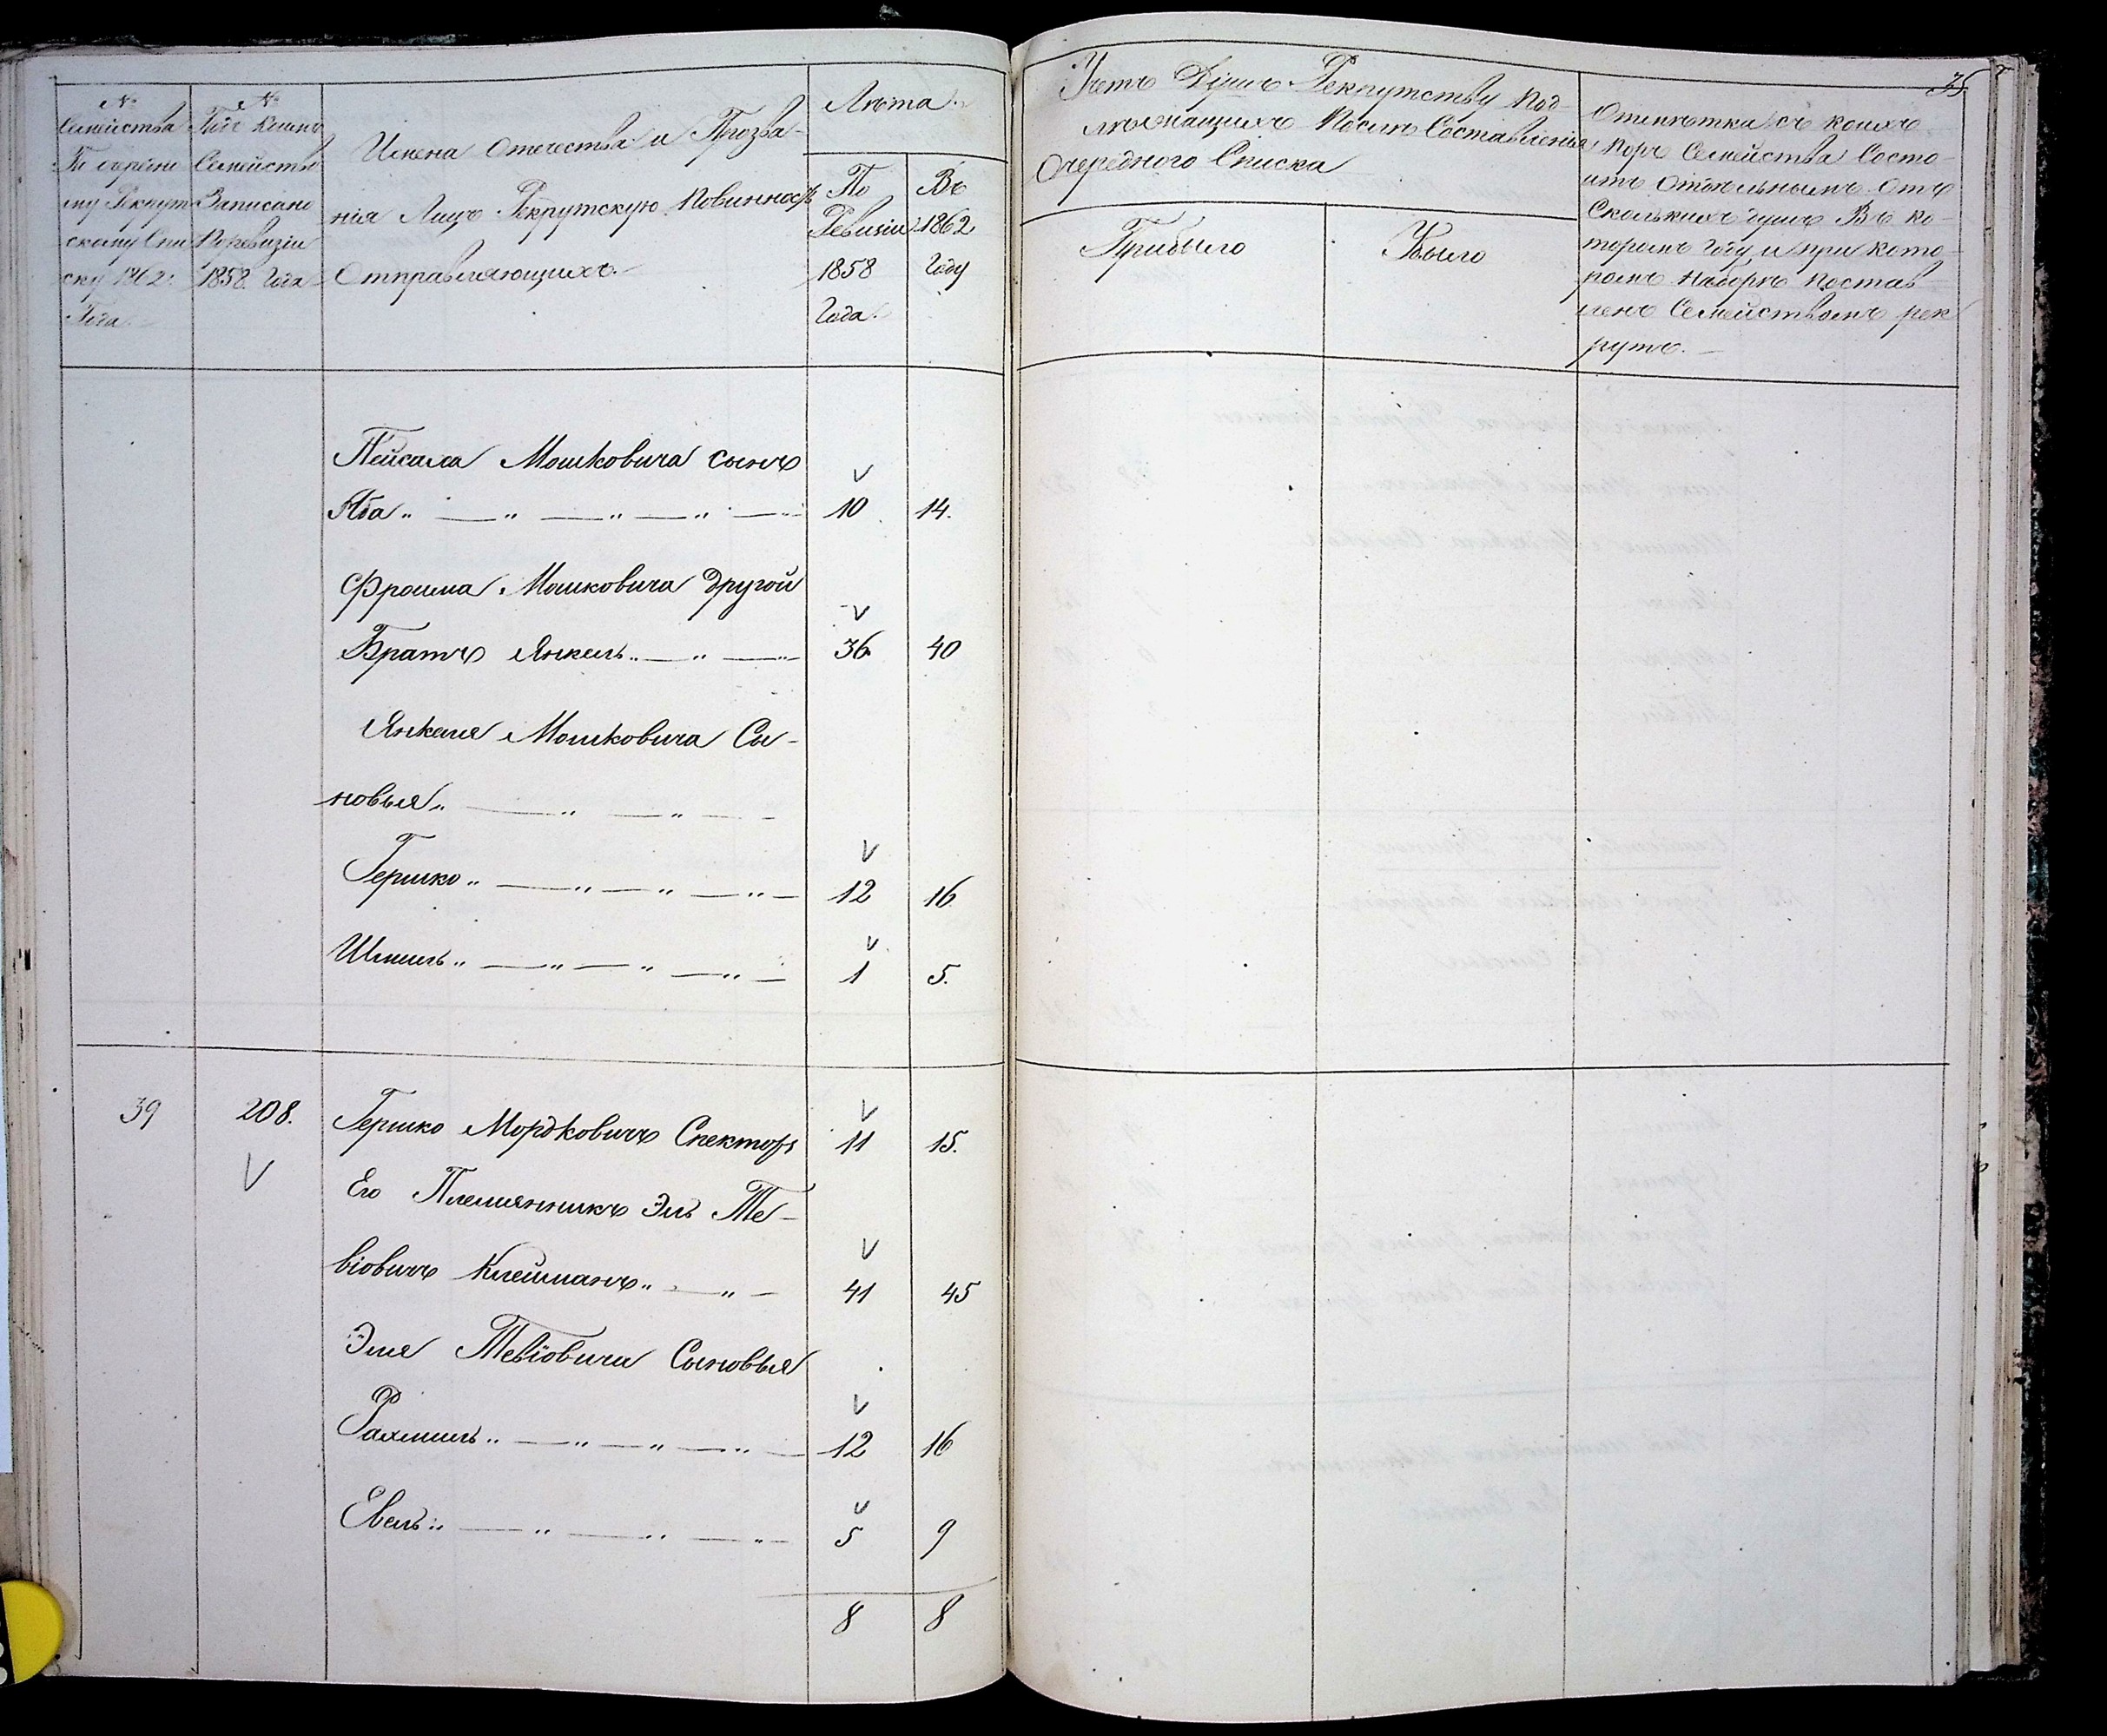 №
Семейства
По очередно
му Рекрут
скому Спи
ску 1862:
Года
№
Подъ Коимъ
Семейство
Записано
Поревизіи
1858. Года
Имена Отечества и Прозва-
нія Лицъ Рекрутскую Повинность
Отправляющихъ.
Лѣта.
По
Ревизіи
1858
Года.
Въ
1862
Году
Пейсаха Мошковича сынъ
Аба 10 14.
Фроима Мошковича другой
Братъ Янкель 36 40
Янкеля Мошковича Сы-
новья
Гершко 12 16
Шмиль 1 5.
39 208. Гершко Мордковичъ Спекторъ 11 15.
Его Племянникъ Эль Те-
віовичъ Клейманъ 41 45
Эля Тевіовича Сыновья
Рахмиль 12 16
Евель 5 9
8 8
35
Учетъ Душъ Рекрутству Под-
лежащихъ После Составленія
Очереднаго Списка
Прибыло
Убыло
Отмѣтка съ коихъ
поръ Семейство Состо-
итъ Отдѣльнымъ Отъ
Сколькихъ душъ Въ ко-
торомъ году и при кото-
ромъ наборѣ Постав-
ленъ Семействомъ рек
рутъ.